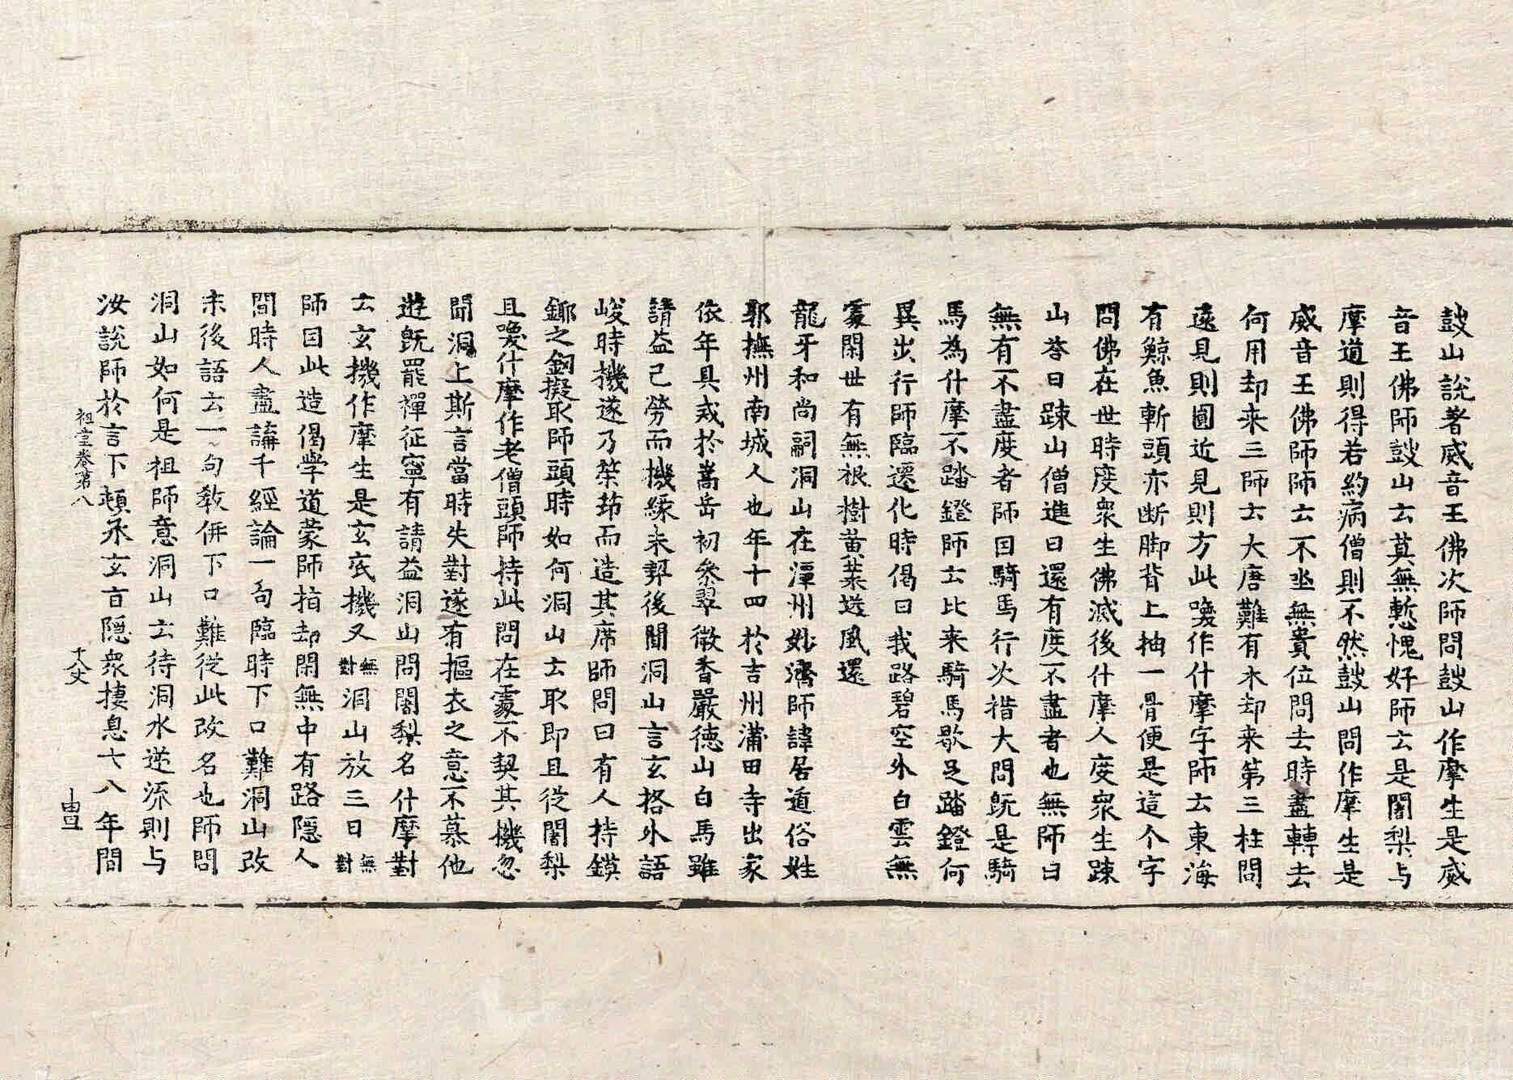 鼓山說著威音王佛次師問鼓山作摩生是威
音王佛師鼓山云莫無慙愧好師云是闍梨与
摩道則得若約病僧則不然鼓山問作摩生是
威音王佛師師云不坐無貴位問去時盡轉去
何用却来三師云大唐難有木却来第三柱問
遠見則圓近見則方此喚作什摩字師云東海
有鯨魚斬頭亦断脚背上抽一骨便是這个字
問佛在世時度衆生佛滅後什摩人度衆生踈
山答曰踈山僧進曰還有度不盡者也無師曰
無有不盡度者師因騎馬行次措大問旣是騎
馬為什摩不踏鐙師云比来騎馬歇足踏鐙何
異出行師臨遷化時偈曰我路碧空外白雲無
處閑世有無根樹黃葉送風還
龍牙和尚嗣洞山在潭州妙濟師諱居遁俗姓
郭撫州南城人也年十四於吉州蒲田寺出家
依年具戒於嵩岳初叅翠微香嚴德山白馬雖
請益已勞而機緣未契後聞洞山言玄格外語
峻時機遂乃䇿笻而造其席師問曰有人持鏌
鎁之釰擬取師頭時如何洞山云取即且從闍梨
且喚什摩作老僧頭師持此問在處不契其機忽
聞洞上斯言當時失對遂有摳衣之意不慕他
遊旣罷禪征寧有請益洞山問闍梨名什摩對
云玄機作摩生是玄底機又無對洞山放三日無對
師因此造偈學道蒙師指却閑無中有路隱人
間時人盡講千經論一句臨時下口難洞山改
末後語云一句教伊下口難從此改名也師問
洞山如何是祖師意洞山云待洞水逆流則与
汝說師於言下頓承玄旨隱衆棲息七八年間
祖堂卷第八